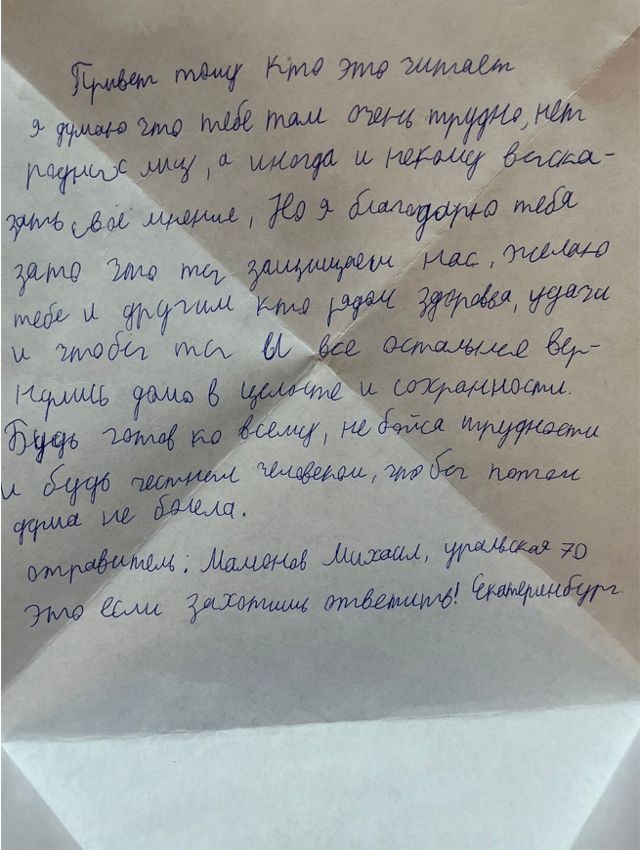 Привет тому кто это читает
я думаю что тебе там очень трудно, нет
родных лиц, а иногда и некому выска-
зать своё мнение, Но я благодарю тебя
зато что ты защищаеш нас, желаю
тебе и другим кто рядом здоровья, удачи
и чтобы ты и все остальные вер-
нулись домо в целосте и сохранности.
Будь готов ко всему, не бойся трудности
и будь честным человеком, чтобы потом
душа не болела.
отравитель: Мамонов Михаил, уральская 70
Это если захотишь ответить! Екатеринбург.